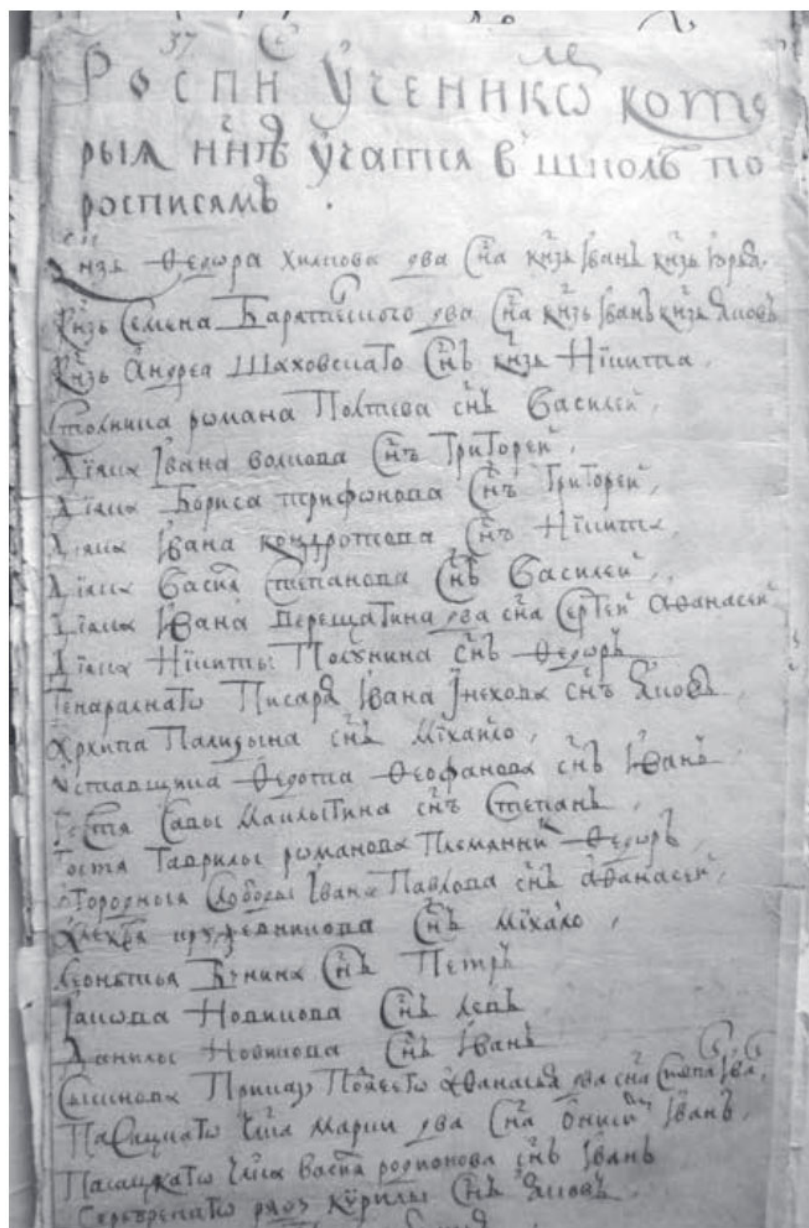 37
Роспи ученикѡ кото
рыя ннѣ учатся в школѣ по
росписямъ .
Кнзя Ѳедора Хилкова два сна кнзь Іванъ кнзь Юрья.
Кнзь Семена Борятиского два сна кнзь Іванъ кнзь Яковъ
Кнзь Андрея Шаховскаго снъ кнзь Нїкита,
Столника романа Полтева снъ Василей,
Дїяка Івана волкова снъ Григорей,
Дїяка Бориса трифонова снъ Григорей,
Дїяка Івана кондротова снъ Нїкита,
Дїяка Васил Степанова снъ Василей,
Дїяка Івана Верещагина два сна Сергей Аѳанасей
Дїяка Нїкиты Полунина снъ Ѳедоръ
Генаралнаго Писаря Івана Інехова снъ Яковъ
Архипа Палицына снъ Мїхайло,
Уставщика Ѳедота Ѳеофанова снъ Іванъ
Гостя Савы снъ Степанъ,
Гостя Гаврилы романова Племянник Ѳедоръ,
Огородныя Слободы Івана Павлова снъ Аѳанасей,
Алеѯѣя снъ Мїхало,
Леонтья Бунина снъ Петръ
Іакова Новикова снъ левъ
Данилы Новикова снъ Іванъ
Приказ Аѳанасья два сна Степа Іва,
марки два сна Іванъ
васил родионова снъ Іванъ
Серебренаго ряду Курилы снъ Яковъ